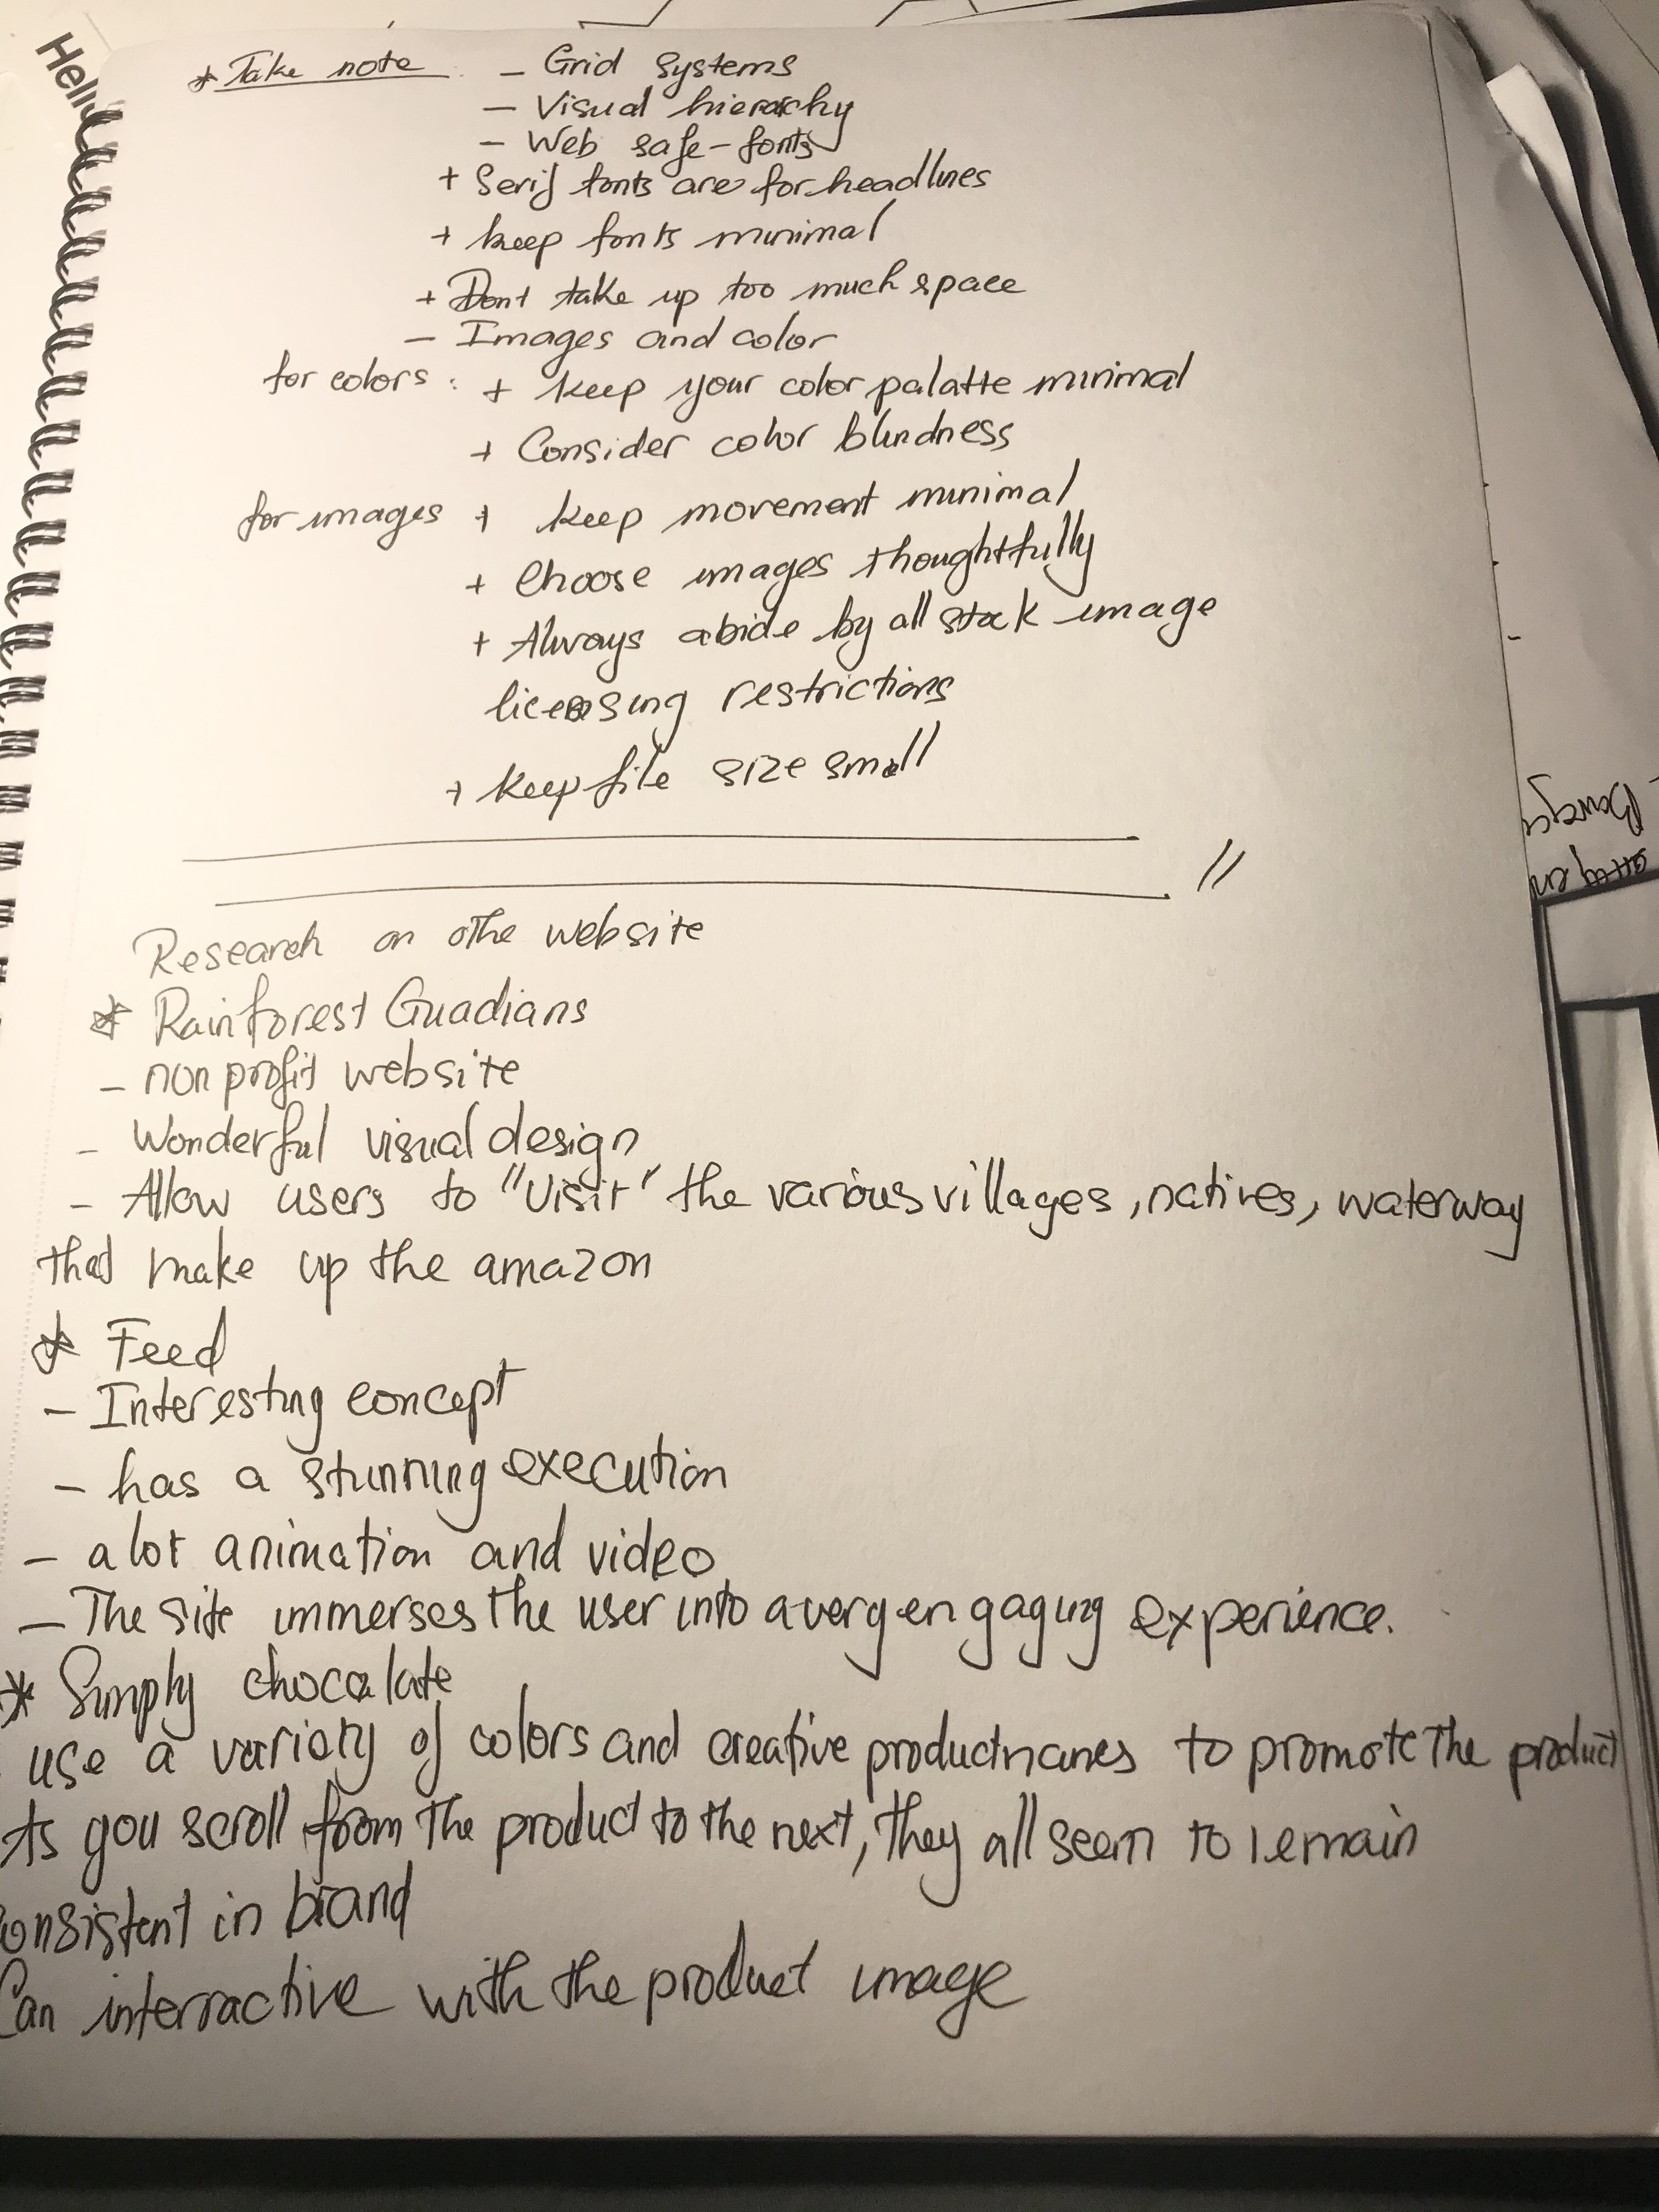 * Take note - Grid systems
- Visual hierarchy
- Web safe-fonts
+ Serif fonts are for headlines
+ keep fonts minimal
+ Dont take up too much space
- Images and color
for colors : + keep your color palatte minimal
+ Consider color blindness
for images + keep movement minimal
+ Choose images thoughtfully
+ Always abide by all stock image
licensing restrictions
+ keep file size small
//
Research on othe website
* Rainforest Guadians
- non profit website
- Wonderful visual design
- Allow users to "Visit" the various villages, natives, waterway
that make up the amazon
* Feed
- Interesting concept
- has a stunning execution
- a lot animation and video
- The site immerses the user into a very engaging experience.
* Simply chocalate
use a variety of colors and creative product names to promote the product
As you scroll from the product to the next, they all seem to remain
consistent in brand
Can interractive with the product image